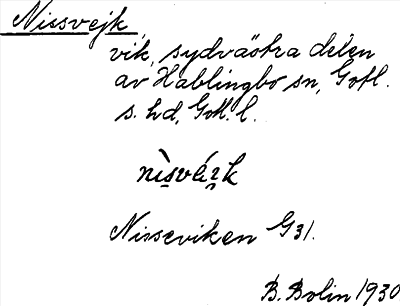 Nissvejk,
vik, sydvästra delen
av Hablingbo sn, Gotl.
s. hd, Gotl. l.
Nisseviken G31.
B. Bolin 1930